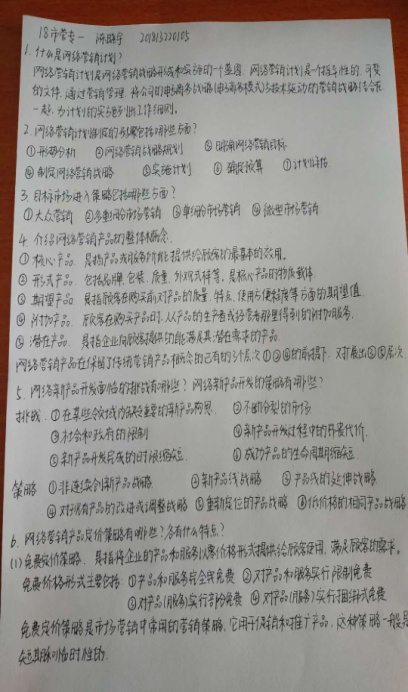 18市营专一 201813220105
1. 什么是网络营销计划?
网络营销计划是网络营销战略形成和实施的一个蓝图. 网络营销计划是个指导性的, 可变
的文件, 通过营销管理, 将公司的电子商务战略(电子商务模式)与技术驱动的营销战略结合在
一起, 为计划的实施列出工作细则。
2. 网络营销计划制定的步骤包括哪些方面?
①形势分析 ②网络营销战略规划 ③明确网络营销目标
④制定网络营销战略 ⑤实施计划 ⑥确定预算 ⑦计划评估
3. 目标市场进入策略包括哪些方面?
①大众营销 ②多细分市场营销 ③单细分市场营销 ④微型市场营销
4. 介绍网络营销产品的整体概念.
①核心产品 是指产品或服务所能提供给顾客的最基本的效用。
②形式产品 包括品牌、包装、质量、外观式样等, 是核心产品的物质载体
③期望产品 是指顾客在购买前对产品的质量、特点、使用方便程度等方面的期望值
④附加产品 顾客在购买产品时, 从产品的生产者或经营者那里得到的附加服务.
⑤潜在产品 是指企业向顾客提供的能满足其潜在需求的产品
网络营销产品在保留了传统营销产品概念的已有的3个层次①②④的前提下, 又扩展出③⑤层次.
5. 网络新产品开发面临的挑战有哪些? 网络新产品开发的策略有哪些?
挑战 ①在某些领域内缺乏重要的新产品构思 ②不断分裂的市场
③社会和政府的限制 ④新产品开发过程中的昂贵代价
⑤新产品开发完成的时限缩短 ⑥成功产品的生命周期缩短
策略 ①非连续创新产品战略 ②新产品线战略 ③产品线的延伸战略
④对现有产品的改进或调整战略 ⑤重新定位的产品战略 ⑥低价格的相同产品战略
6. 网络营销产品定价策略有哪些? 各有什么特点?
(1) 免费定价策略. 是指将企业的产品和服务以零价格形式提供给顾客使用, 满足顾客的需求。
免费价格形式主要包括 ①产品和服务完全免费 ②对产品和服务实行限制免费
③对产品(服务)实行部分免费 ④对产品(服务)实行捆绑式免费
免费定价策略是市场营销中常用的营销策略, 它用于促销和推广产品, 这种策略一般是
短期和临时性的.